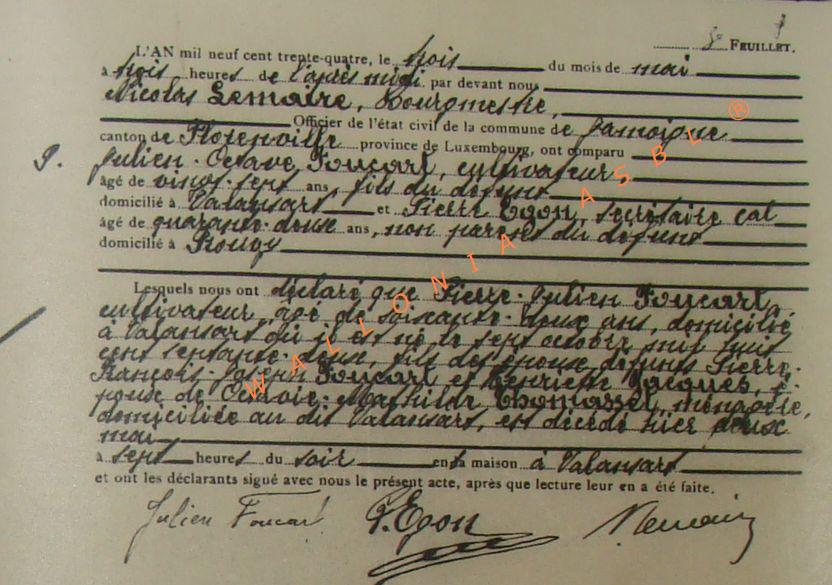 8 FEUILLET.
L'AN mil neuf cent trente-quatre, le trois du mois de mai
à trois heures de l'après midi, par devant nous
Nicolas Lemaire, Bourgmestre,
Officier de l'état civil de la commune de Jamoigne
canton de Florenville province de Luxembourg, ont comparu
9. Julien-Octave Foucart, cultivateur
âgé de vingt-sept ans, fils du défunt
domicilié à Valansart et Pierre Egon, secrétaire cal
âgé de quarante-deux ans, non parent du défunt
domicilié à Prouvy
Lesquels nous ont déclaré que Pierre-Julien Foucart,
cultivateur, âgé de soixante-deux ans, domicilié
à Valansart où il est né le sept octobre mil huit
cent septante-deux, fils des époux défunts Pierre-
François-Joseph Foucart et Henriette Jacques, é-
poux de Mathilde Thomasset, ménagère,
domiciliée au dit Valansart, est décédé hier deux
mai
à sept heures du soir en sa maison à Valansart
et ont les déclarants signé avec nous le présent acte, après que lecture leur en a été faite.
Julien Foucart P. Egon N Lemaire
WALLONIA ASBL ®